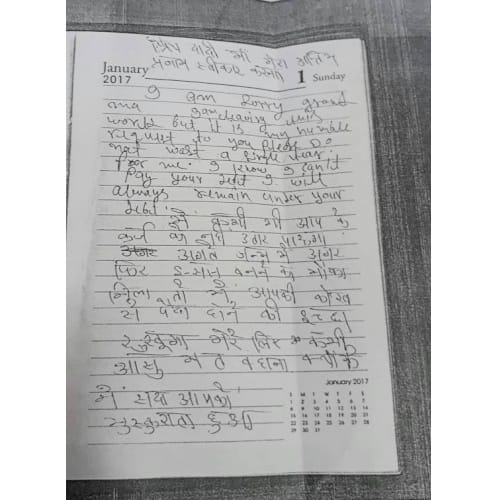 प्रिय दादी माँ मेरा अंतिम
January
2017
प्रणाम स्वीकार करना
1 Sunday
I am sorry grand
ma I am leaving this
world but it is my humble
request to you please Do
not wast a single tear
For me. I know I can't
Pay your debt I will
always remain under your
debt. मैं कभी भी आप के
कर्ज को नहीं उतार पाऊंगा
अगर अगले जन्म में अगर
फिर इन्सान बनने का मौका
मिला तो मैं आपकी कोख
से पैदा होने की इच्छा
रखुंगा मेरे लिए कभी
आंसु मत बहाना क्योंकि
मैं सदा आपको
मुस्कुराता हुआ
January 2017
S M T W T F S
1 2 3 4 5 6 7
8 9 10 11 12 13 14
15 16 17 18 19 20 21
22 23 24 25 26 27 28
29 30 31